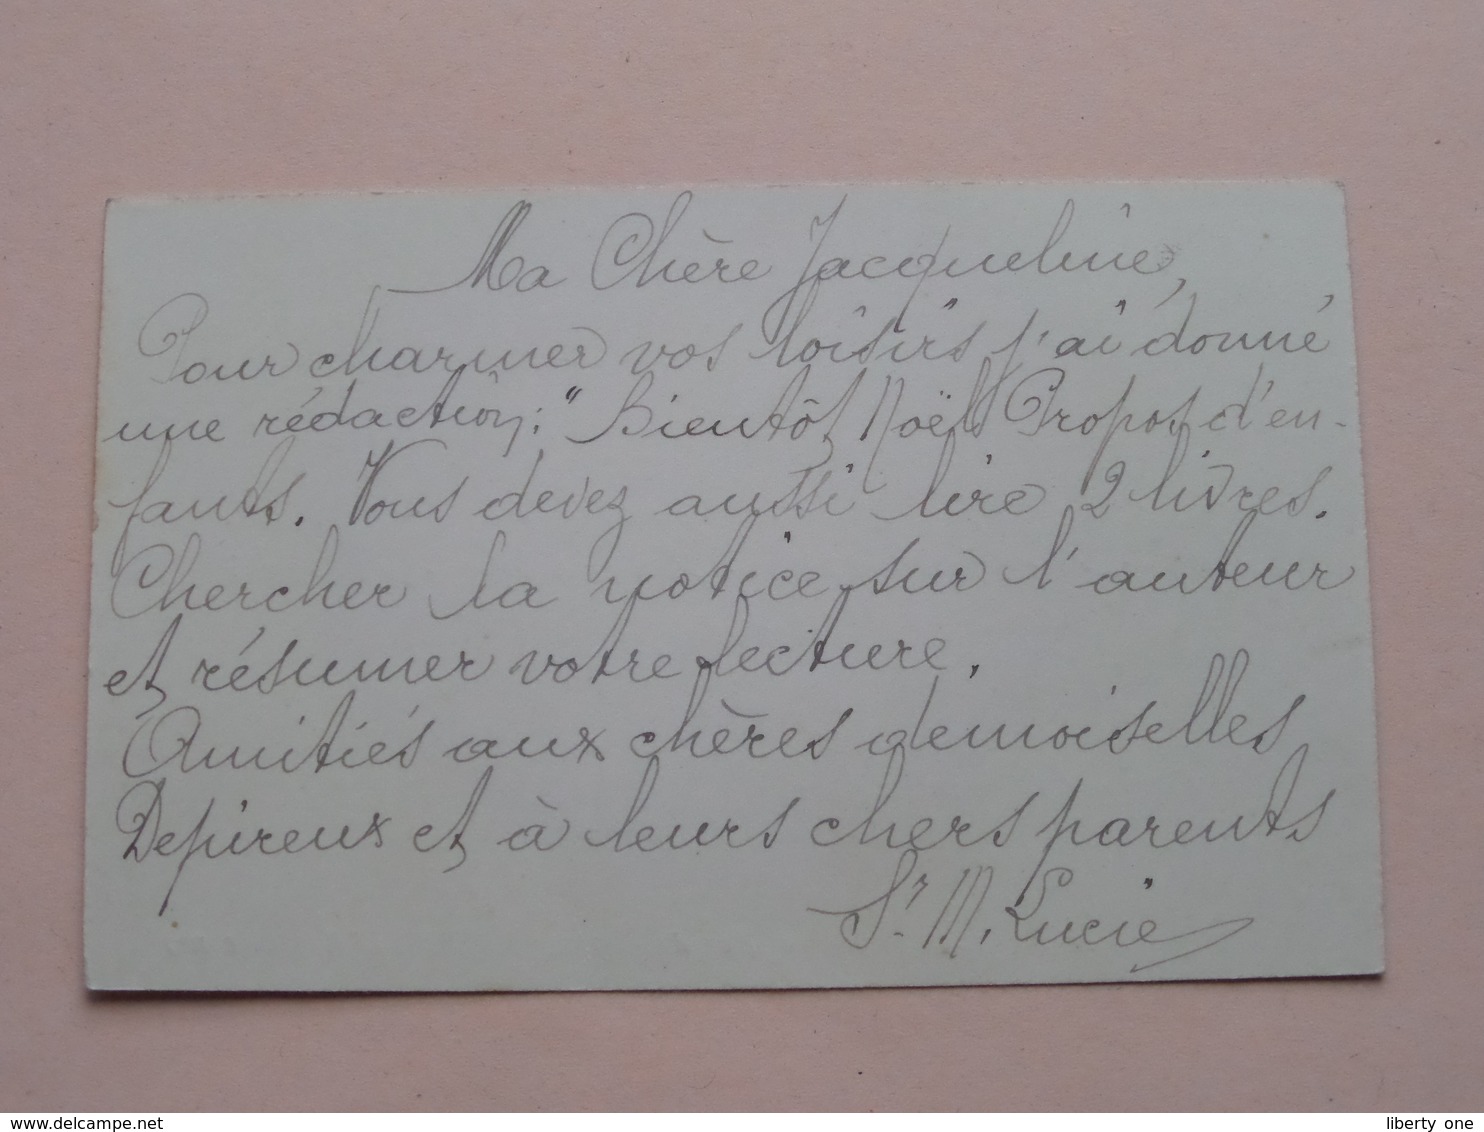 Ma Chère Jacqueline,
Pour charmer vos loisirs j'ai donné
une rédaction : "Bientôt Noël" Propos d'en-
fants. Vous devez aussi lire 2 livres.
Chercher la notice sur l'auteur
et résumer votre lecture.
Amitiés aux chères demoiselles
Depireux et à leurs chers parents
Sr. M. Lucie
www.delcampe.net
liberty one